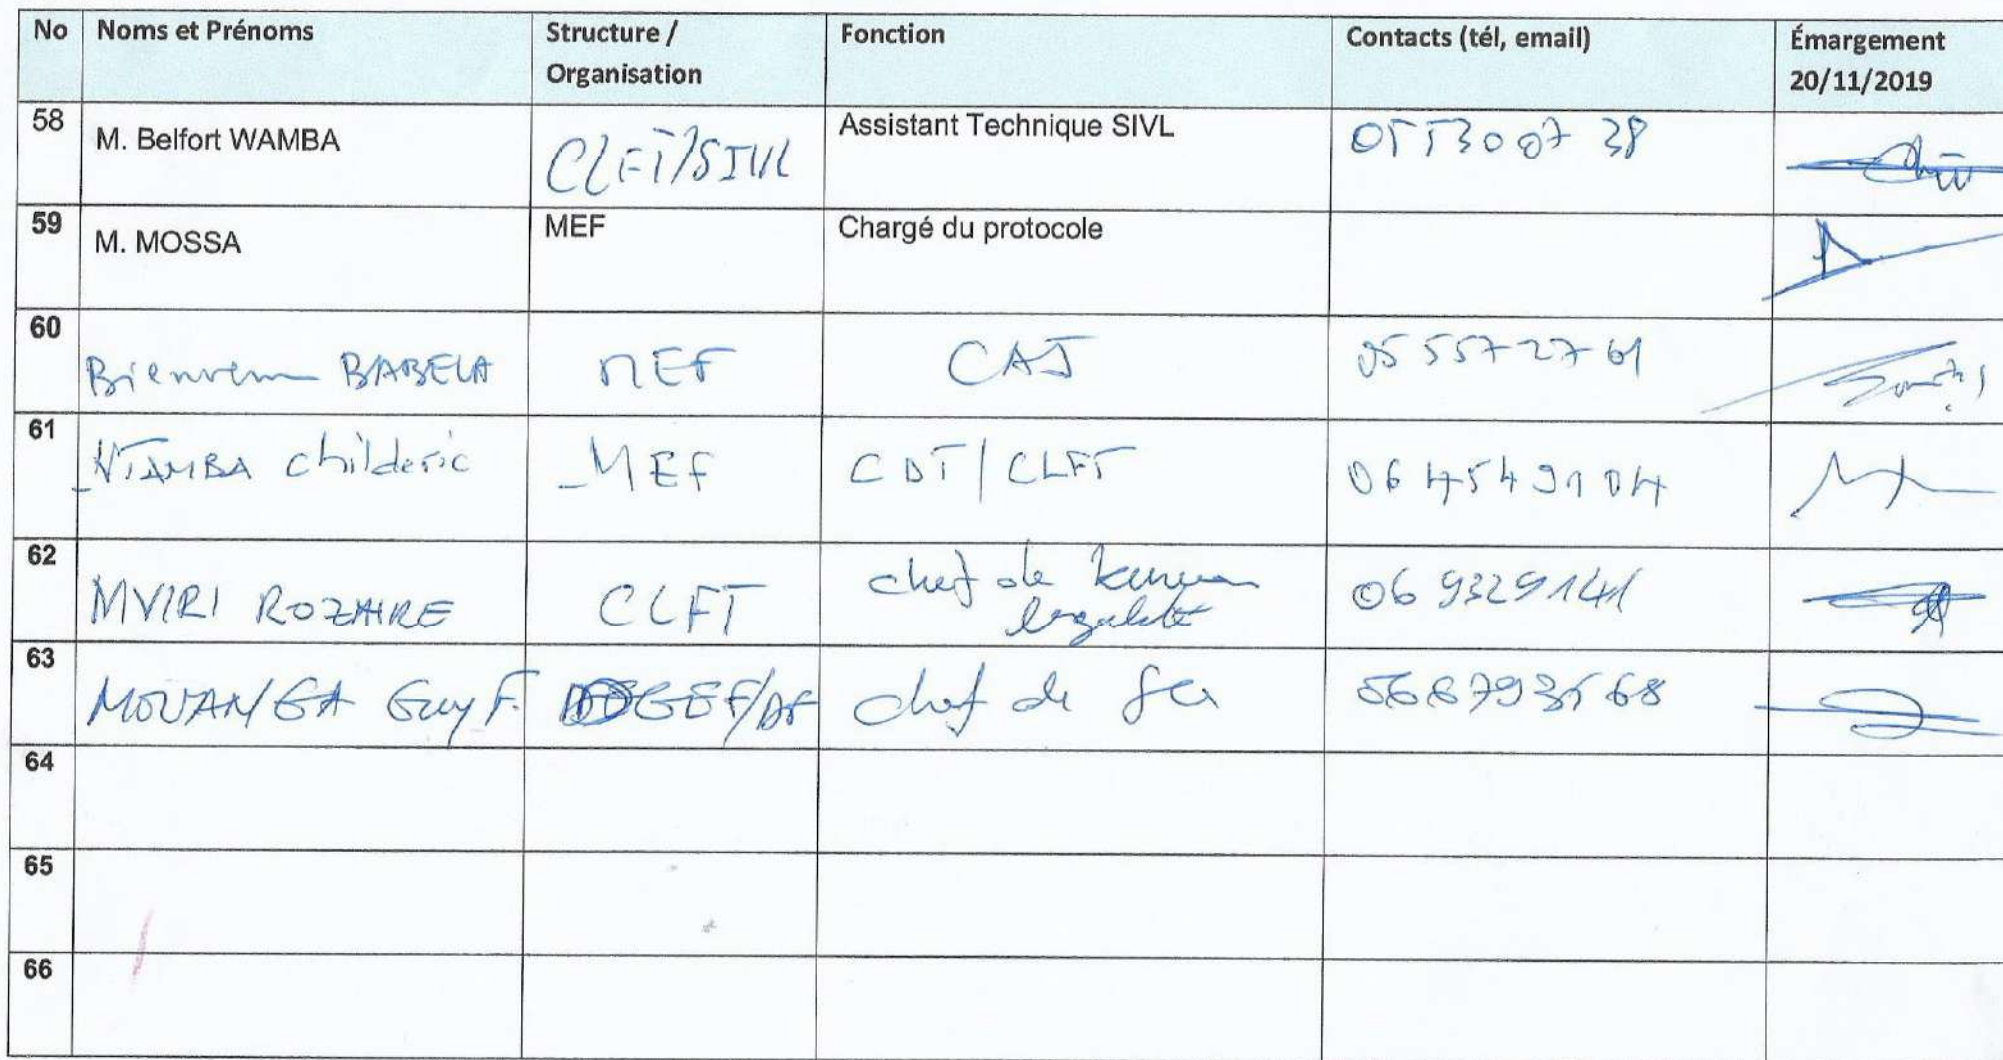 No Noms et Prénoms Structure / Organisation Fonction Contacts (tél, email) Émargement 20/11/2019
58 M. Belfort WAMBA CLFT/SIVL Assistant Technique SIVL 05 530 07 38
59 M. MOSSA MEF Chargé du protocole
60 Bienvenu BABELA MEF CAJ 05 557 27 61
61 NTAMBA childeric MEF CDT/CLFT 06 454 91 04
62 MVIRI ROZAIRE CLFT chef de légalité 06 9329141
63 MOUANGA Guy F. DGEF/DF chef de
64
65
66